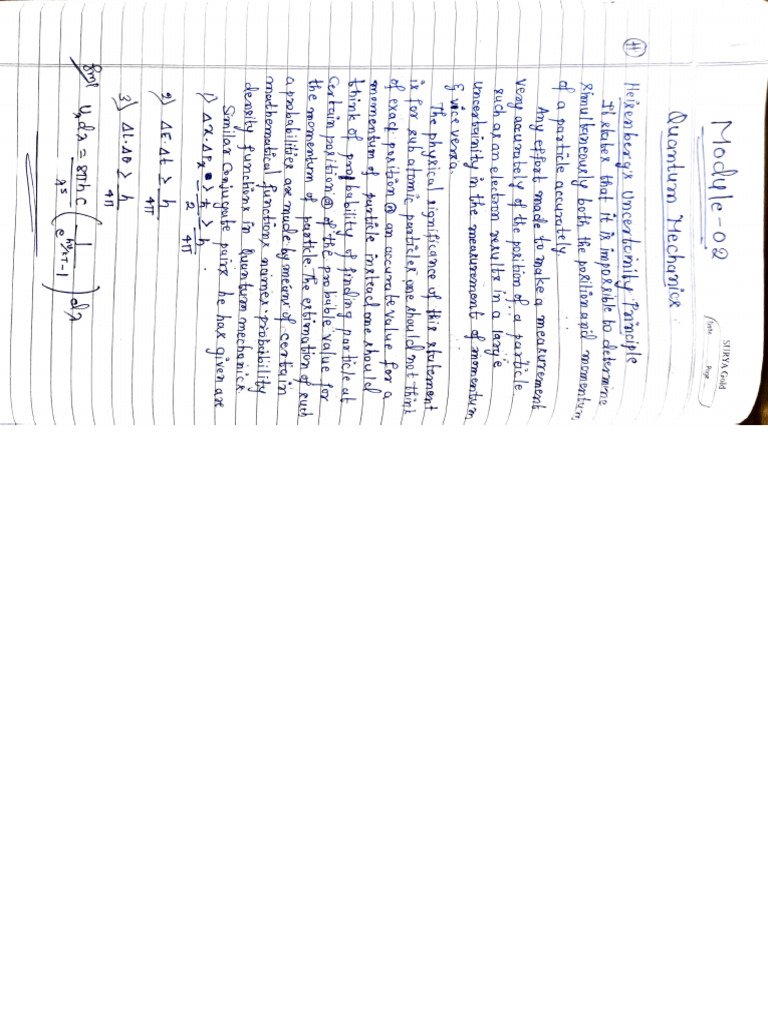 SURYA Gold
Date Page
Module-02
Quantum Mechanics.
(#) Heisenberg's Uncertainity Principle
It states that it is impossible to determine
simultaneously both the position and momentum
of a particle accurately
Any effort made to make a measurement
very accurately of the position of a particle
such as an electron results in a large
uncertainity in the measurement of momentum
& vice versa.
The physical significance of this statement
is for sub atomic particles one should not think
of exact position @ an accurate value for a
momentum of particle instead one should
think of probability of finding particle at
certain position @ of the probable value for
the momentum of particle. The estimation of such
a probabilities are made by means of certain
mathematical functions names probability
density functions in quantum mechanics.
Similar conjugate pairs he has given are
1) Δx·ΔPx ≥ ħ/2 ≥ h/4π.
2) ΔE·Δt ≥ h/4π
3) ΔL·Δθ ≥ h/4π
Uλdλ = 8πhc/λ⁵ (1/(e^(hν/λT)-1)) dλ